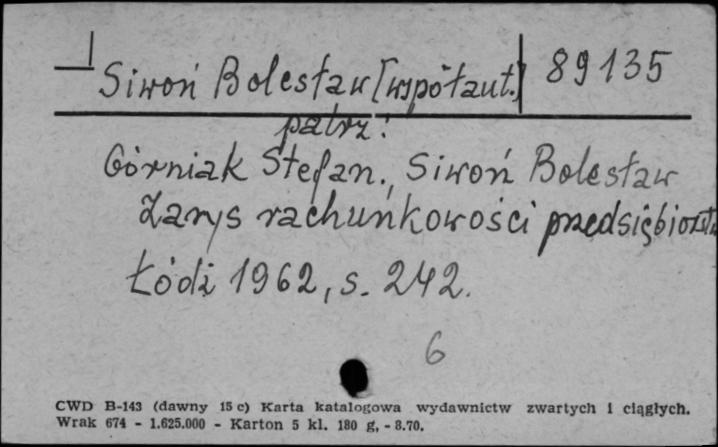 Siwoń Bolesław [współaut.] 89135
patrz:
Górniak Stefan., Siwoń Bolesław
Zarys rachunkowości przedsiębiorstw
Łódź 1962, s. 242.
6
CWD B-143 (dawny 15 c) Karta katalogowa wydawnictw zwartych i ciągłych.
Wrak 674 - 1.625.000 - Karton 5 kl. 180 g, - 8.70.